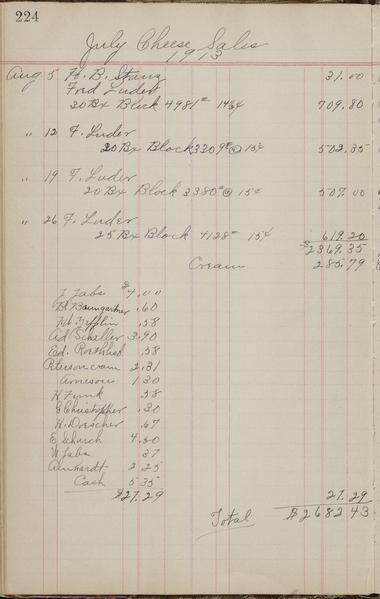 224
July Cheese Sales
1913
Aug 5 H. B. Stanz 31.00
Fred Luder
20 Bx Block 4981# 14¼¢ 709.80
" 12 F. Luder
20 Bx Block 3309# @ 15¢ 502.35
" 19 F. Luder
20 Bx Block 3380# @ 15¢ 507.00
" 26 F. Luder
25 Bx Block 4128# 15¢ 619.20
$2369.35
Cream 285.79
J Jabs $4.00
Baumgartner .60
.58
Ad Schaller 3.90
Ed. .58
Peterson cream 2.31
Arneson 1 30
H Funk .58
G Christopher .30
H. Doescher .67
E Church 4.50
W Jabs 37
Arnhardt 2 25
Cash 5 35
$27.29 27.29
Total $2682.43